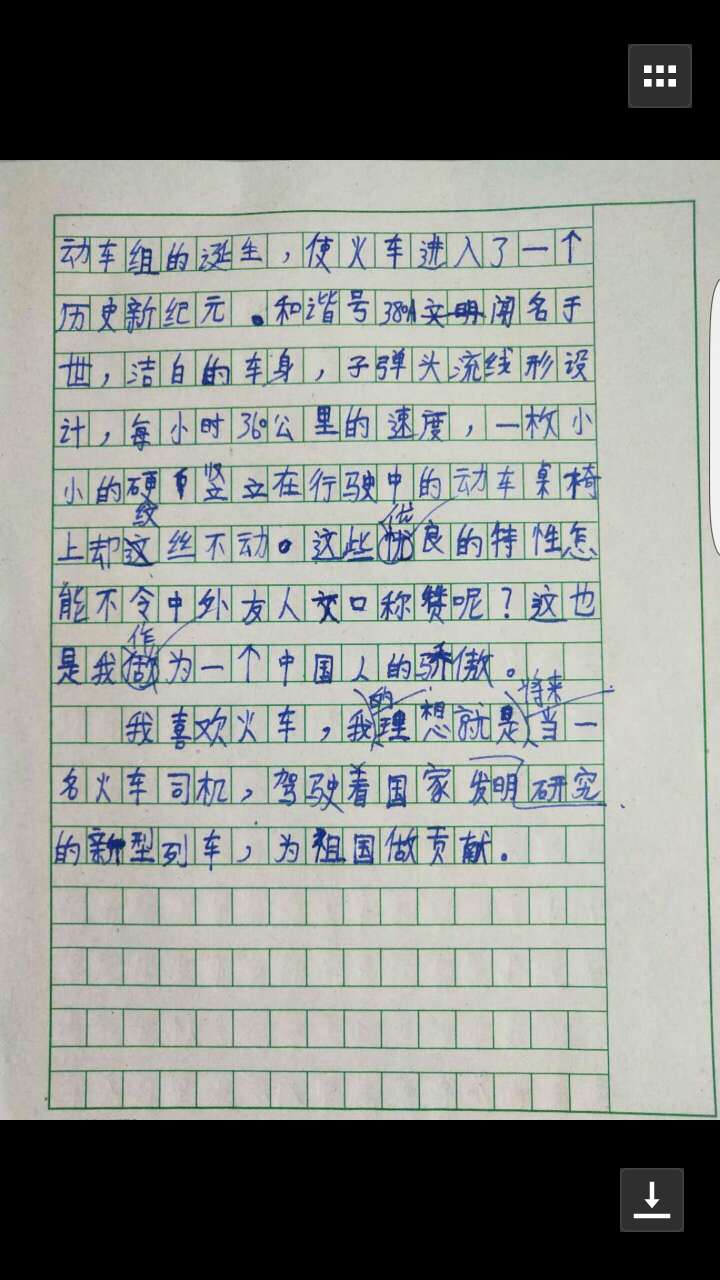 动车组的诞生，使火车进入了一个
历史新纪元。和谐号380A闻名于
世，洁白的车身，子弹头流线形设
计，每小时360公里的速度，一枚小
小的硬币竖立在行驶中的动车桌椅
上却纹丝不动。这些优良的特性怎
能不令中外友人交口称赞呢？这也
是我作为一个中国人的骄傲。
我喜欢火车，我的理想就是将来当一
名火车司机，驾驶着国家发明研究
的新型列车，为祖国做贡献。